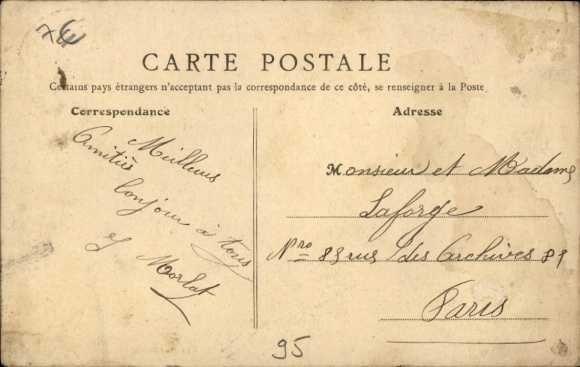 7€
CARTE POSTALE
Certains pays étrangers n'acceptant pas la correspondance de ce côté, se renseigner à la Poste
Correspondance
Meilleurs
Amitiés
bonjour à tous
Morlat
Adresse
Monsieur et Madame
Laforge
Nro 83 rue des Archives 83
Paris
95